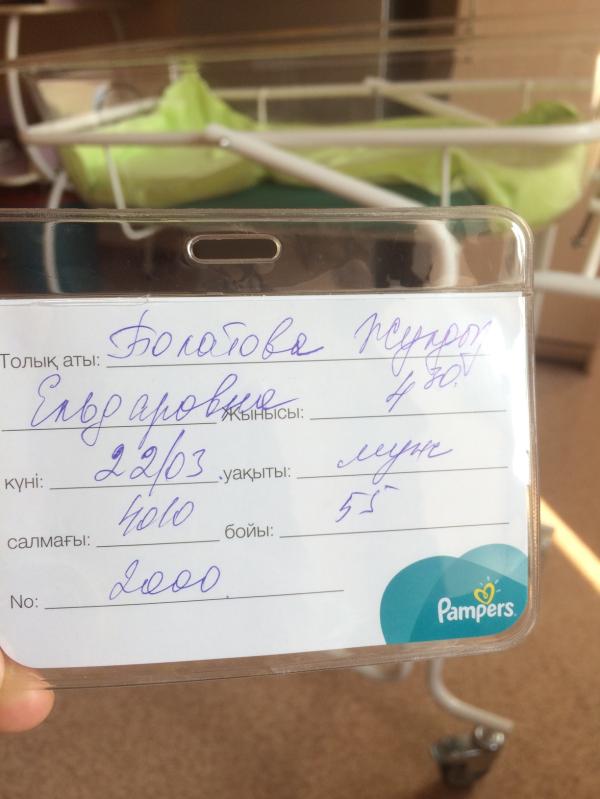 Толық аты: Болатова Жулдыз
Ельдаровна Жынысы: 4 30.
күні: 22/03. уақыты: муж
салмағы: 4010 бойы: 55
No: 2000.
Pampers.